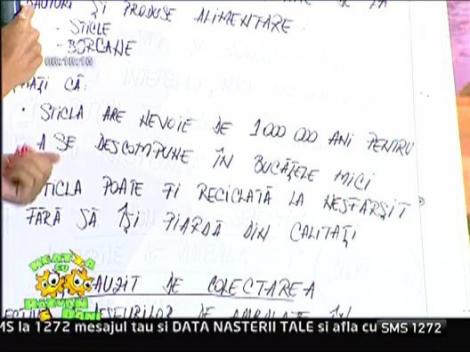 BĂUTURI ȘI PRODUSE ALIMENTARE.
- STICLE
- BORCANE
CĂ:
· STICLA ARE NEVOIE DE 1000 000 ANI PENTRU
A SE DESCOMPUNE ÎN BUCĂȚELE MICI
STICLA POATE FI RECICLATĂ LA NESFÂRȘIT
FĂRĂ SĂ ÎȘI PIARDĂ DIN CALITĂȚI
AUZIT DE COLECTAREA
DEȘEURILOR DE AMBALAJE ÎN
NEATZA
CU
RAZVAN
SI DANI
SMS la 1272 mesajul tau si DATA NASTERII TALE si afla cu SMS 1272